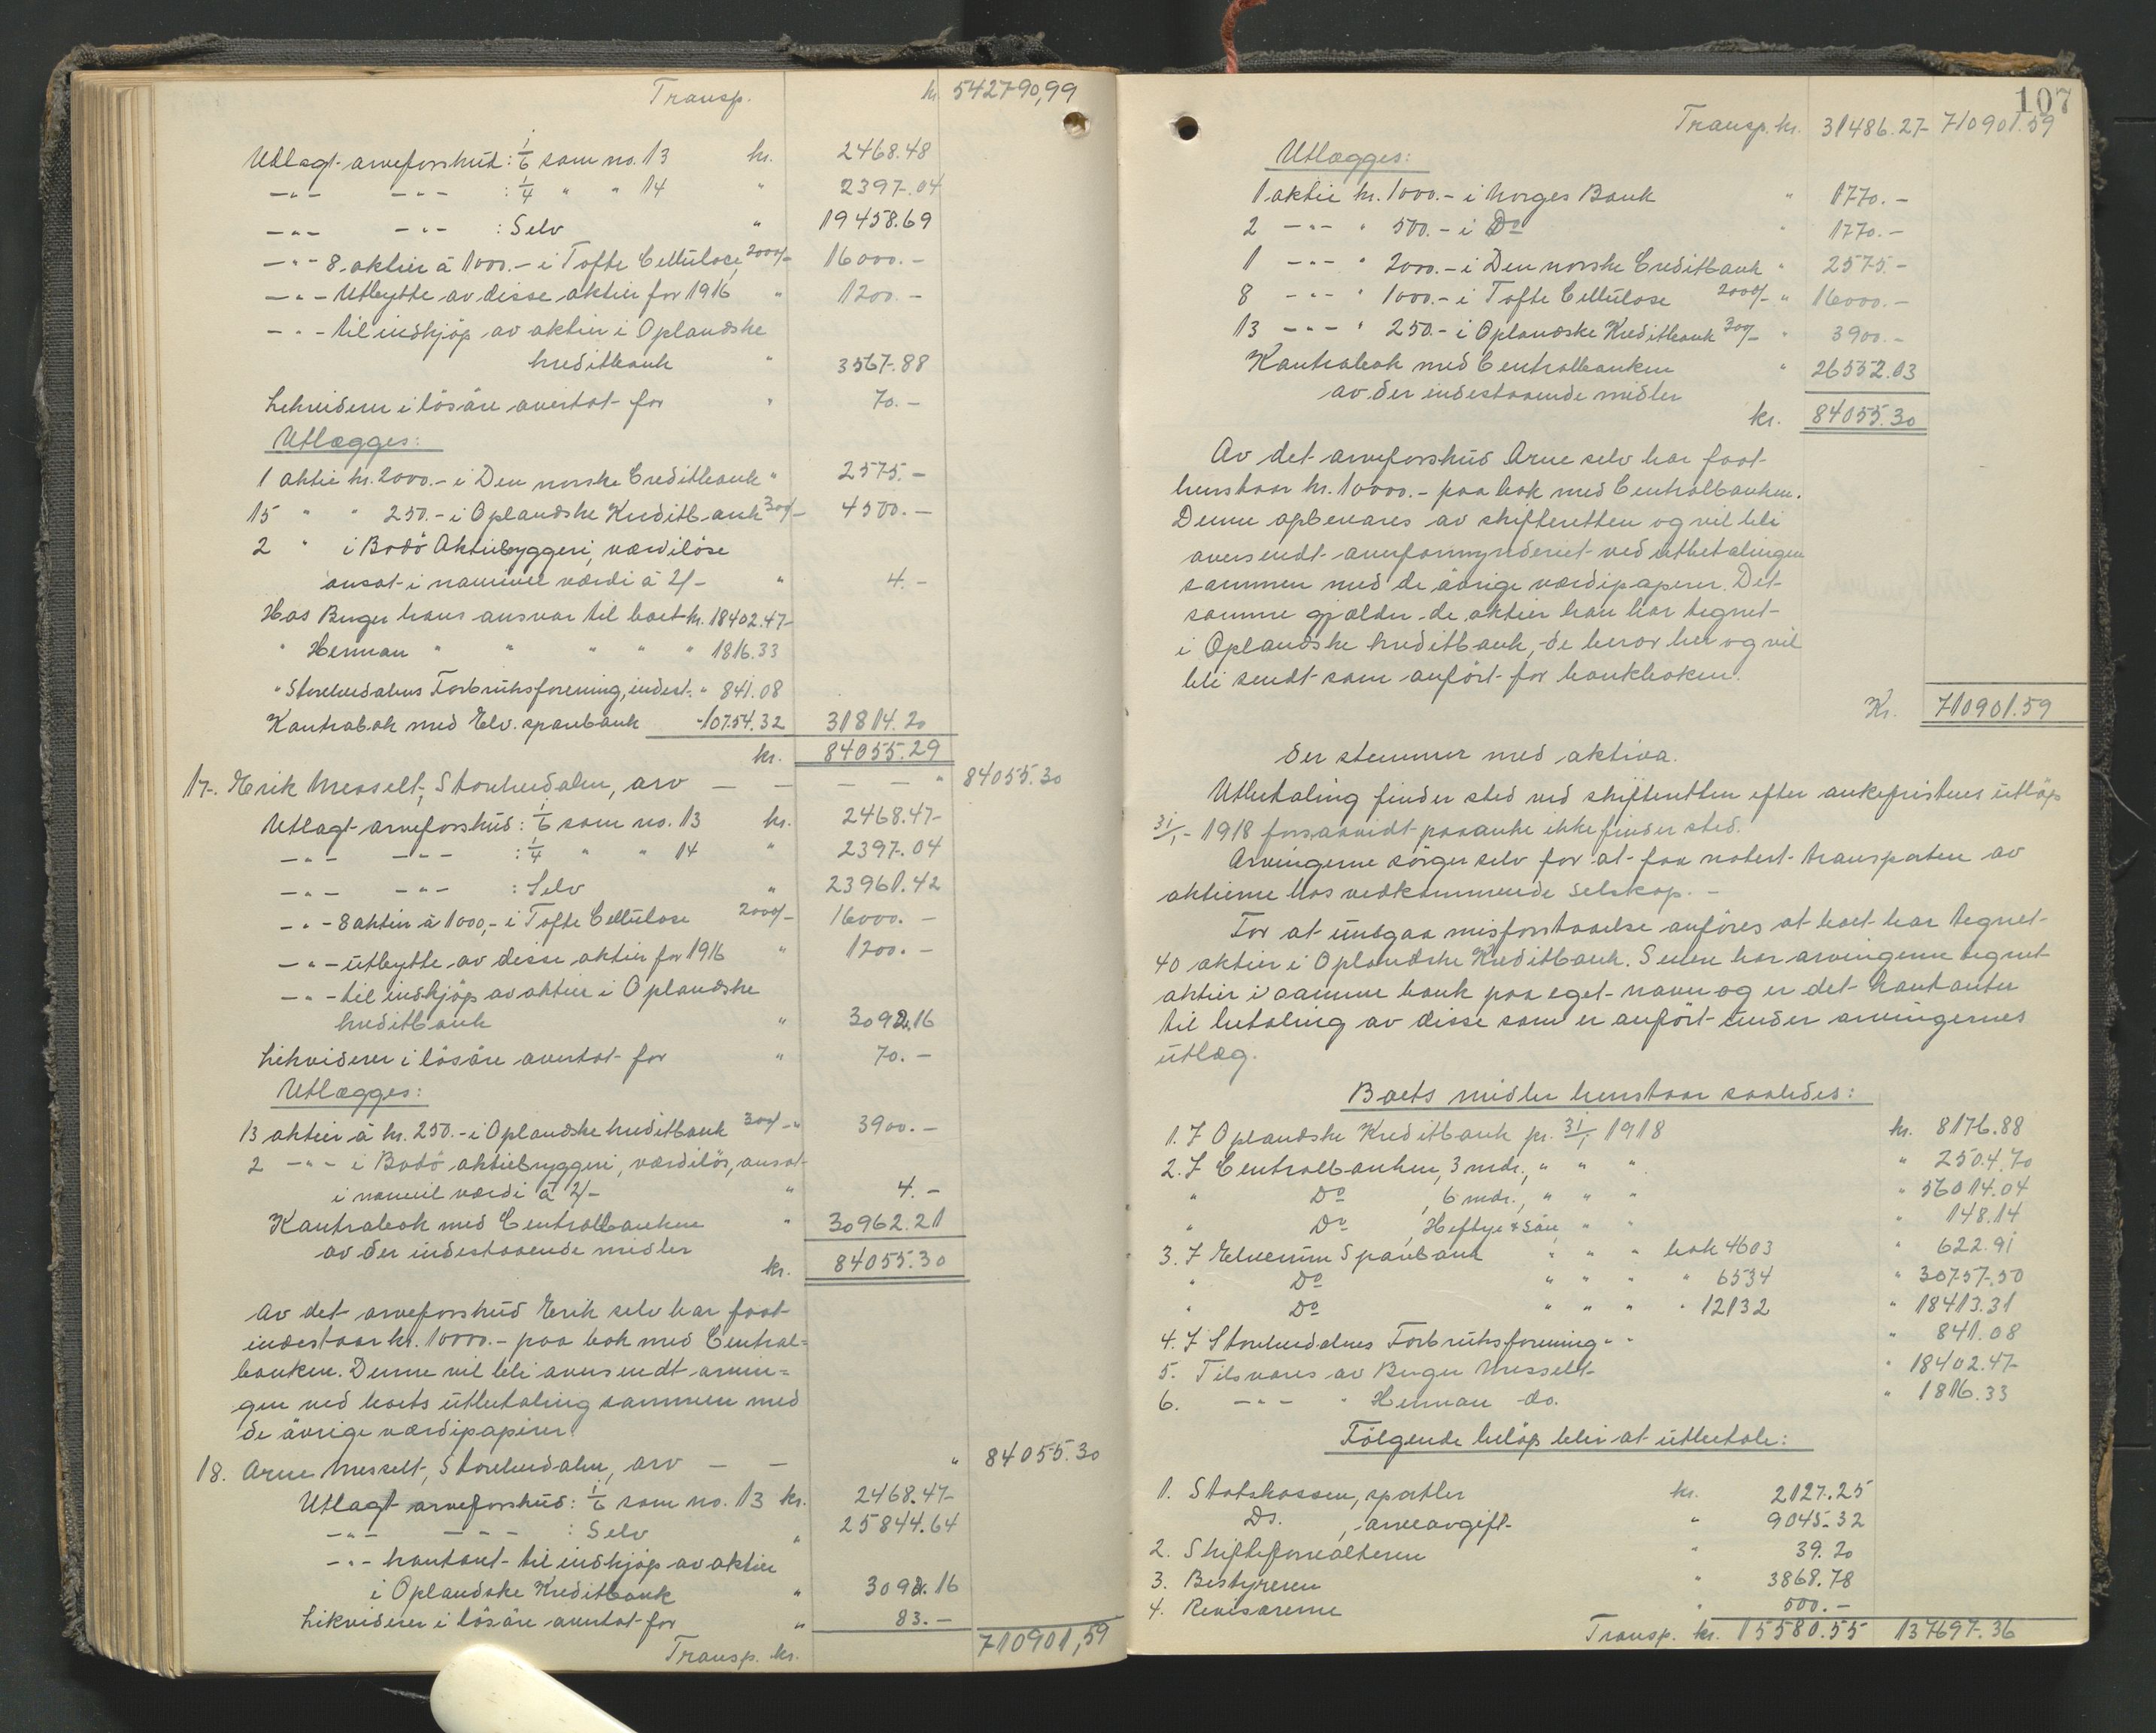 Transp. kr. 542790,99
Utlagt arveforskud: 1/6 som no. 13 kr. 2468.48
-"- -"- : 1/4 " " 14 " 2397.04
-"- -"- : Selv " 19458.69
-"- 8 aktier à 1000.- i Tofte Cellulose, 2000/- 16000.-
-"- Utbytte av disse aktier for 1916 " 1200.-
-"- til indkjöp av aktier i Oplandske
kreditbank " 3567.88
Likviderer i lösöre overtat for " 70.-
Utlægges:
1 aktie kr. 2000.- i Den norske Creditbank " 2575.-
15 " " 250.- i Oplandske Kreditbank 300/- 4500.-
2 " i Bodö Aktiebryggeri, værdilöse
ansat i nominel værdi à 2/- " 4.-
Hos Birger hans ansvar til boet kr. 18402.47
" Herman " " " " " 1816.33
" Storelvdalens Forbruksforening, indest. " 841.08
Kontrabok med Elv. sparebank " 10754.32 31814.20
kr. 84055.29
17. Erik Messelt, Storelvdalen, arv — — — — " 84055.30
Utlagt arveforskud: 1/6 som no. 13 kr. 2468.47
-"- -"- : 1/4 " " 14 " 2397.04
-"- -"- : Selv " 23961.42
-"- 8 aktier à 1000,- i Tofte Cellulose 2000/- 16000.-
-"- utbytte av disse aktier for 1916 " 1200.-
-"- til indkjöp av aktier i Oplandske
kreditbank " 3092.16
Likviderer i lösöre overtat for " 70.-
Utlægges:
13 aktier à kr. 250.- i Oplandske kreditbank 300/- " 3900.-
2 -"- i Bodö aktiebryggeri, værdilös, ansat
i nominel værdi à 2/- " 4.-
Kontrabok med Centralbanken " 30962.21
av der indestaaende midler
kr. 84055.30
Av det arveforskud Erik selv har faat
indestaar kr. 10000.- paa bok med Central=
banken. Denne vil bli oversendt arvin=
gen ved boets utbetaling sammen med
de övrige værdipapirer.
18. Arne Messelt, Storelvdalen, arv — — " 84055.30
Utlagt arveforskud: 1/6 som no. 13 kr. 2468.47
-"- -"- : Selv " 25844.64
-"- kontant til indkjöp av aktier
i Oplandske Kreditbank " 3092.16
Likviderer i lösöre overtat for " 83.-
Transp. kr. 710901,59
107
Transp. kr. 31486.27 710901.59
Utlægges:
1 aktie kr. 1000.- i Norges Bank " 1770.-
2 -"- " 500.- i Do " 1770.-
1 -"- " 2000.- i Den norske Creditbank " 2575.-
8 -"- " 1000.- i Tofte Cellulose 2000/- " 16000.-
13 -"- " 250.- i Oplandske Kreditbank 300/- " 3900.-
Kontrabok med Centralbanken " 26552.03
av der indestaaende midler
kr. 84055.30
Av det arveforskud Arne selv har faat
henstaar kr. 10000.- paa bok med Centralbanken.
Denne opbevares av skifteretten og vil bli
oversendt overformynderiet ved utbetalingen
sammen med de övrige værdipapirer. Det
samme gjælder de aktier han har tegnet
i Oplandske kreditbank, de beror her og vil
bli sendt som anfört for bankboken.
Kr. 710901.59
der stemmer med aktiva.
Utbetaling finder sted ved skifteretten efter ankefristens utlöp
31/1- 1918 forsaavidt paaanke ikke finder sted.
Arvingerne sörger selv for at faa notert transporten av
aktierne hos vedkommende selskap. -
For at undgaa misforstaaelse anföres at boet har tegnet
40 aktier i Oplandske Kreditbank. Senere har arvingerne tegnet
aktier i samme bank paa eget navn og er det kontanter
til betaling av disse som er anfört under arvingernes
utlæg.
Boets midler henstaar saaledes:
1. I Oplandske Kreditbank pr. 31/1 1918 kr. 8176.88
2. I Centralbanken, 3 mdr., " " " " 2504.70
" Do , 6 mdr., " " " " 56014.04
" Do , Heftye & Sön, " " " 148.14
3. I Elverum Sparebank " " " bok 4603 " 622.91
" Do " " " " 6534 " 30757.50
" Do " " " " 12132 " 18413.31
4. I Storelvdalens Forbruksforening " " " 841.08
5. Tilsvares av Birger Messelt " 18402.47
6. -"- " Herman do. " 1816.33
Fölgende belöp blir at utbetale:
1. Statskassen, sportler kr. 2127.25
Do. , arveavgift " 9045.32
2. Skifteforvalteren " 39.20
3. Bestyreren " 3868.78
4. Revisorerne " 500.-
Transp. kr. 15580.55 137697.36